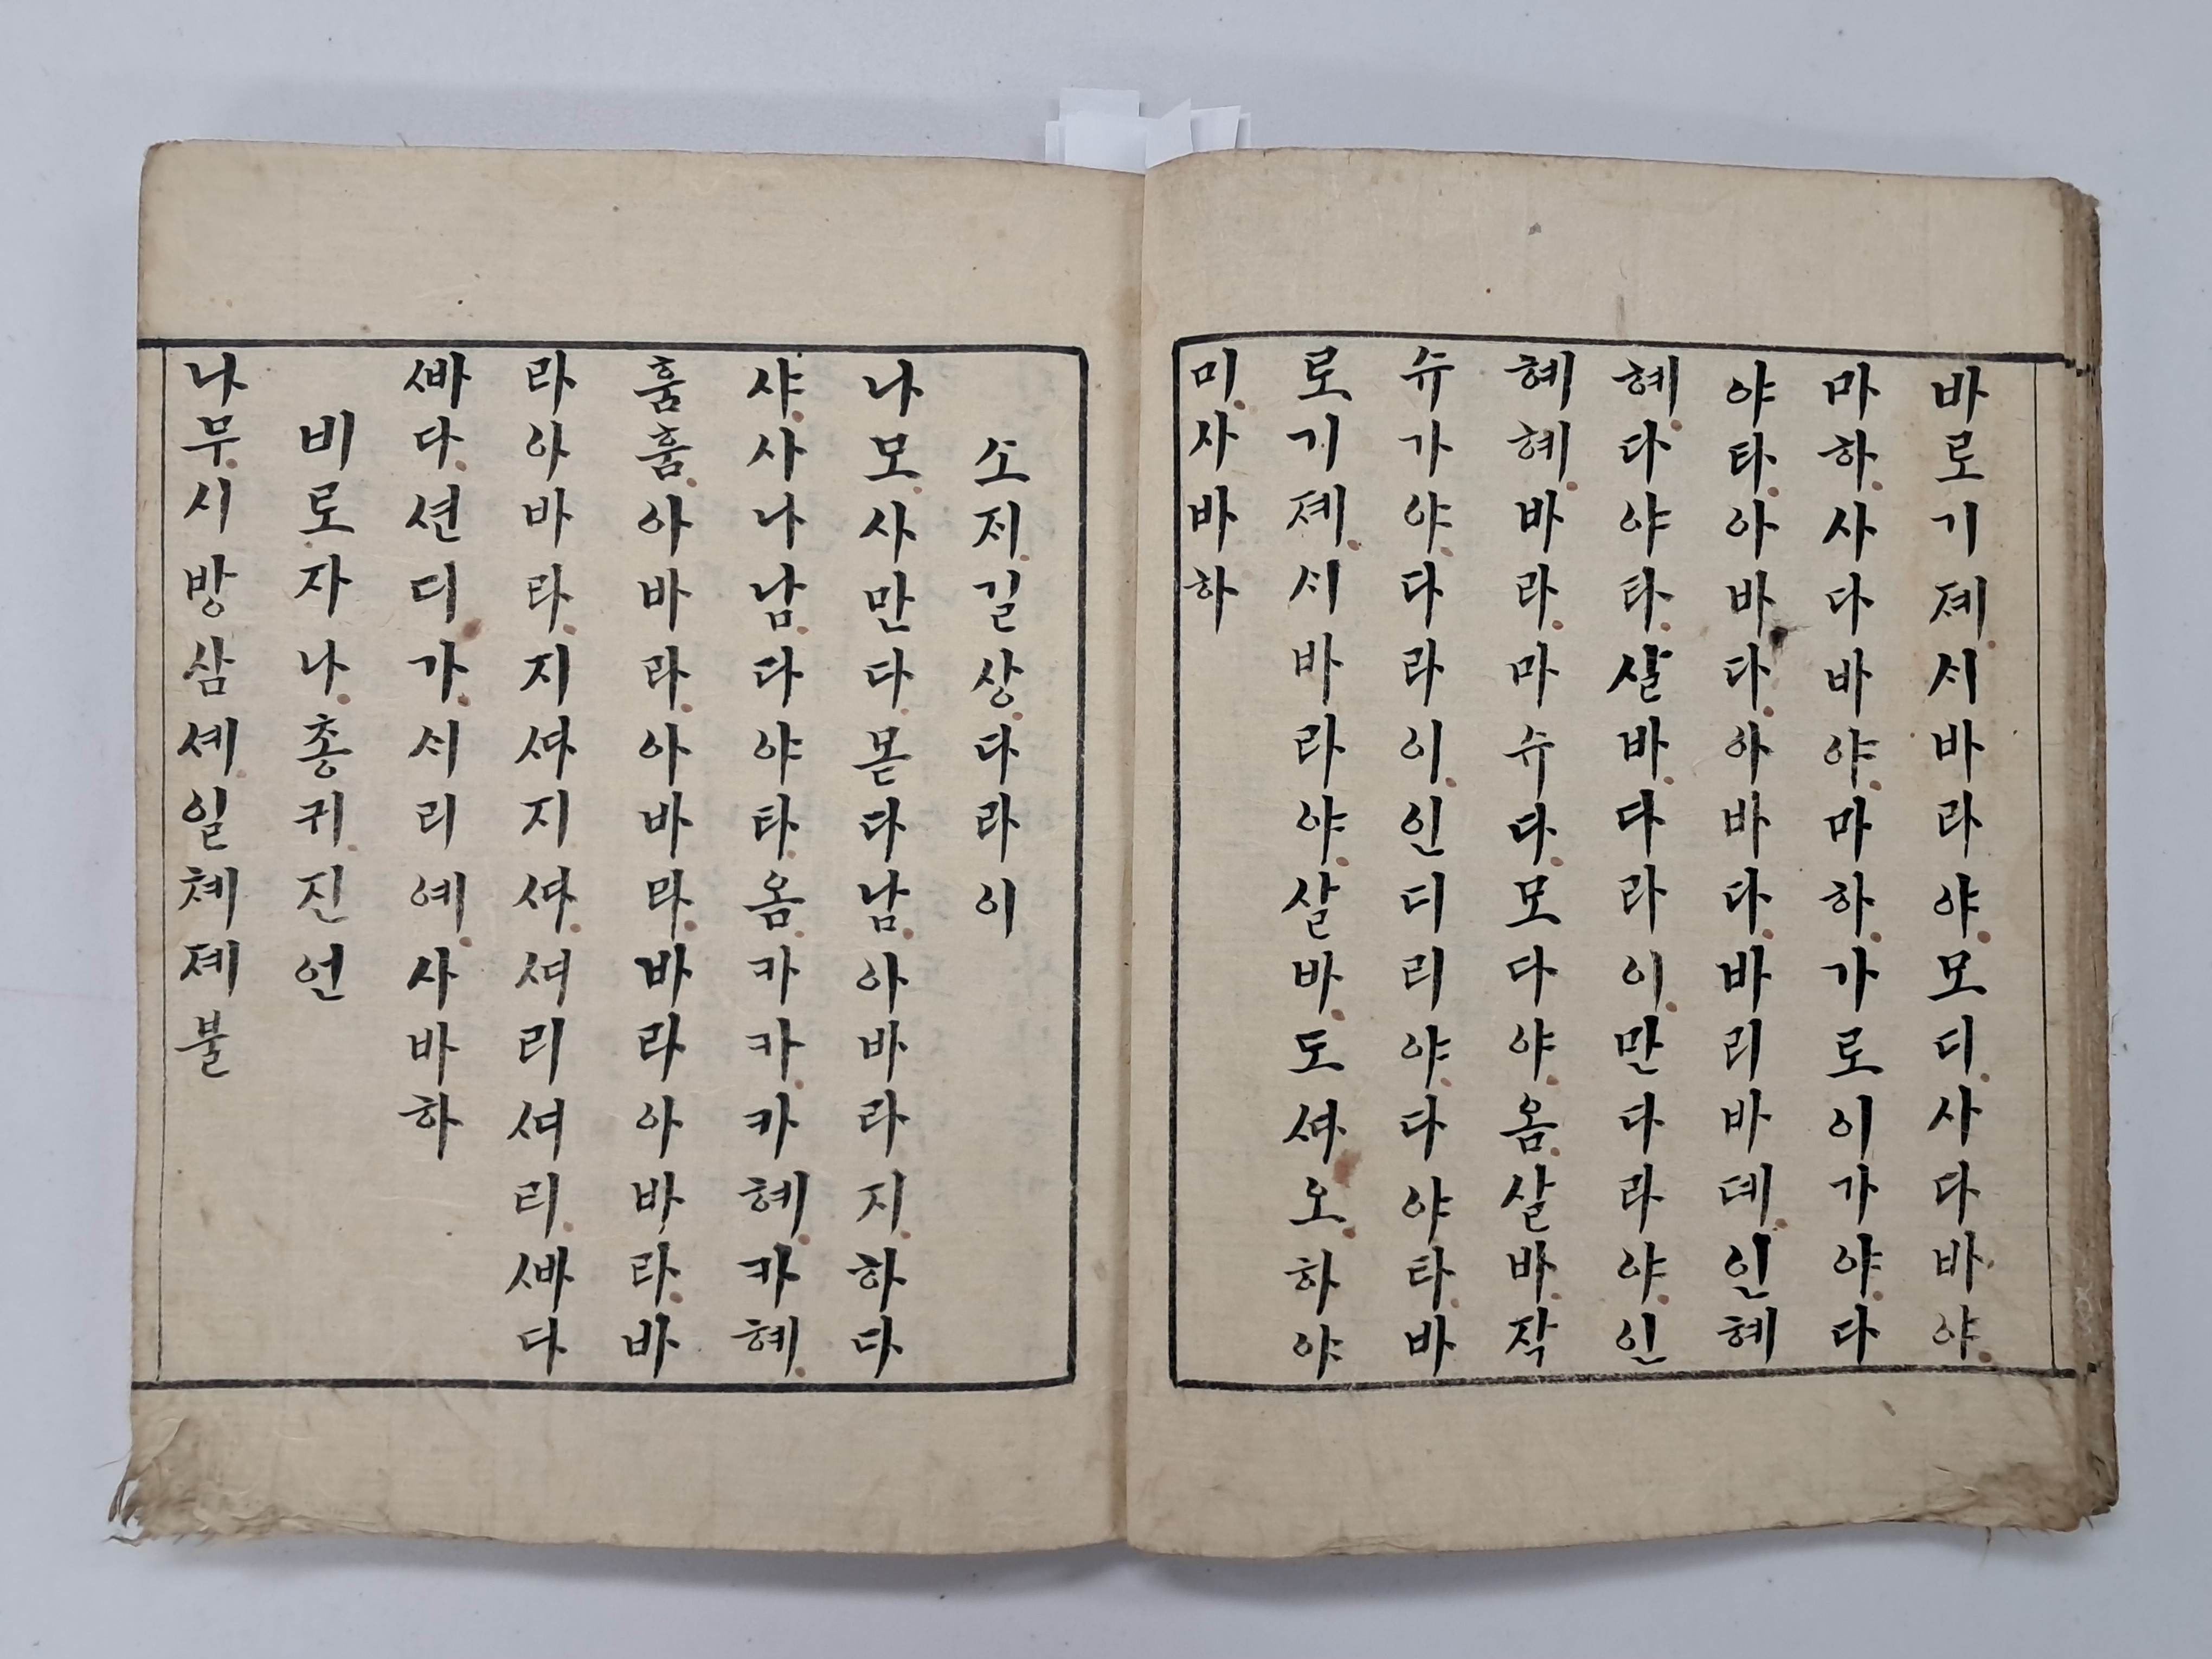 바로기졔시바라야모디사다바야
마하사다바야마하가로이가야다
야타아바다아바다바리바뎨인혜
혜다야타살바다라이만다라야인
혜혜바라마슈다모다야옴살바작
슈가야다라이인디리야다야타바
로기졔시바라야살바도샤오하야
미사바하
소저길상다라이
나모사만다몯다남아바라지하다
샤사나남다야타옴카카카혜카혜
훔훔아바라아바라바라아바라바
라아바라지샤지샤셔리셔리ᄲᅡ다
ᄲᅡ다션디가시리예사바하
비로자나총귀진언
나무시방삼셰일쳬졔불